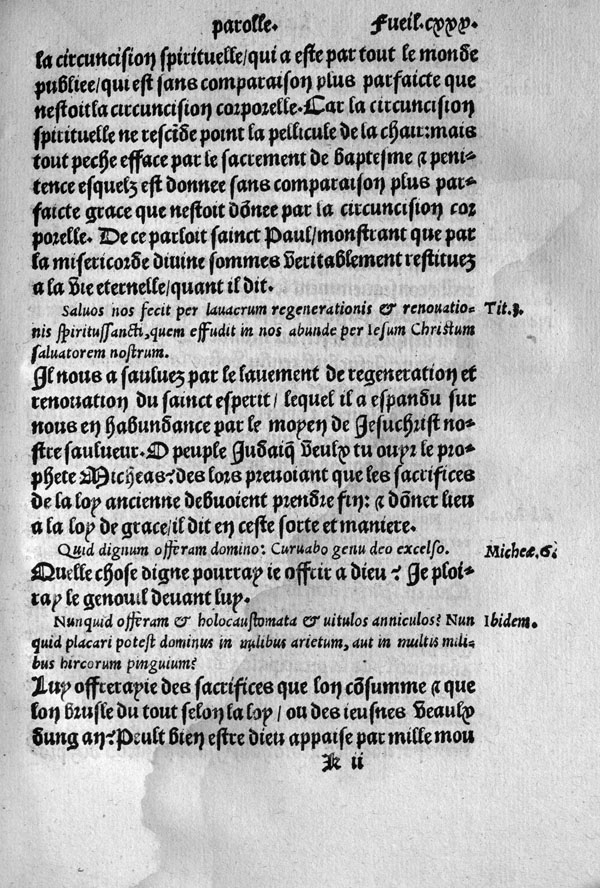 parolle. Fueil.cxxx.
la circuncision spirituelle/qui a este par tout le monde
publiee/qui est sans comparaison plus parfaicte que
nestoit la circuncision corporelle. Car la circuncision
spirituelle ne rescide point la pellicule de la chair: mais
tout peche efface par le sacrement de baptesme & peni-
tence esquelz est donnee sans comparaison plus par-
faicte grace que nestoit dõnee par la circuncision cor
porelle. De ce parloit sainct Paul/monstrant que par
la misericorde divine sommes veritablement restituez
a la vie eternelle/quant il dit.
Saluos nos fecit per lauacrum regenerationis & renouatio- Tit.3.
nis spiritussancti, quem effudit in nos abunde per Iesum Christum
saluatorem nostrum.
Il nous a sauluez par le lauement de regeneration et
renouation du sainct esperit/ lequel il a espandu sur
nous en habundance par le moyen de Jesuchrist no-
stre saulueur. O peuple Judaiq̃ veulx tu ouyr le pro-
phete Micheas? des lors preuoiant que les sacrifices
de la loy ancienne debuoient prendre fin: & dõner lieu
a la loy de grace/il dit en ceste sorte et maniere.
Quid dignum offeram domino? Curuabo genu deo excelso. Micheæ.6.
Quelle chose digne pourray ie offrir a dieu? Je ploi-
ray le genouil deuant luy.
Nunquid offeram & holocaustomata & uitulos anniculos? Nun Ibidem.
quid placari potest dominus in milibus arietum, aut in multis mili-
bus hircorum pinguium?
Luy offrerayie des sacrifices que lon cõsumme & que
lon brusle du tout selon la loy/ ou des ieusnes veaulx
dung an? Peult bien estre dieu appaise par mille mou
K ii